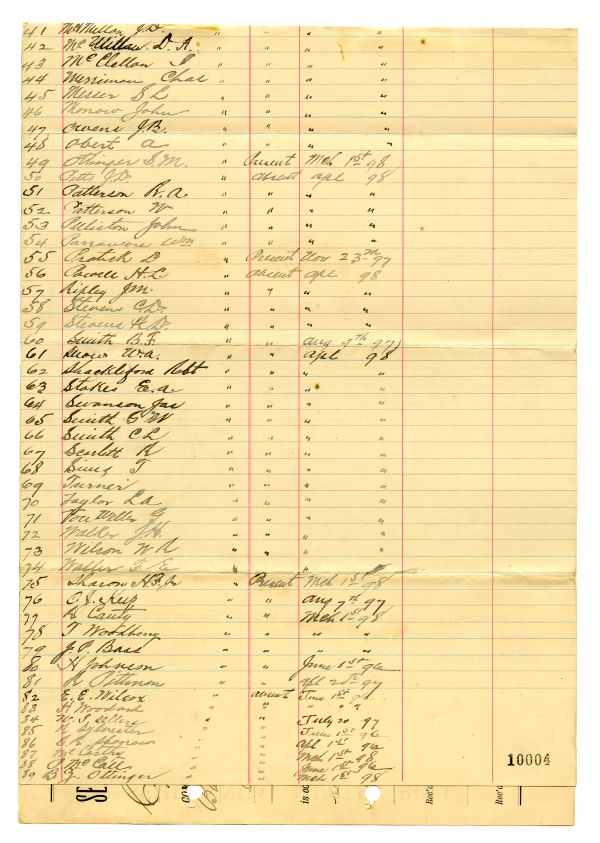 41 McMillan J.D. " " " "
42 McMillan D. A. " " " "
43 McClellan J " " " "
44 Merriman Chas " " " "
45 Messer S L " " " "
46 Morrow John " " " "
47 Owens J.B. " " " "
48 Obert A " " " "
49 Ottinger S.M. " Present Mch 1st 98
50 Pitts J.D. " absent apl 98
51 Patterson R. A " " " "
52 Patterson W " " " "
53 John " " " "
54 Parramore Wm " " " "
55 D " Present Nov 23rd 97
56 Powell H. L. " absent apl 98
57 Ripley J.M. " " " "
58 Stevens C.D. " " " "
59 Stevens H.D. " " " "
60 Smith B.F. " " aug 9th 97
61 Snow W.A. " " apl 98
62 Shackleford Robt " " " "
63 Stokes E.A. " " " "
64 Swanson Jas " " " "
65 Smith G W " " " "
66 Smith C L " " " "
67 Scarlett R " " " "
68 Sims T " " " "
69 Turner " " " "
70 Taylor L.A " " " "
71 Von Weller G " " " "
72 Walker J.H. " " " "
73 Wilson W R " " " "
74 Walter F. E " " " "
75 Sharon H.B. Jr " Present Mch 1st 98
76 C. J. Keep " " aug 7th 97
77 Canty " " Mch 1st 98
78 T Woodberry " " " "
79 J. P. Bass " " " "
80 H Johnson " " June 1st 96
81 R " " apl 20th 97
82 E. E. Wilcox " absent June 1st 96
83 H Woodard " " " "
84 W. S. Sellers " " July 20 97
85 Sylvester " " June 1st 96
86 " " apl 1st 96
87 McCarthy " " Mch 1st 98
88 McCall " " June 1st 96
89 Ottinger " " Mch 1st 98
10004
SE
con
is co
Rec'd
Rec'd